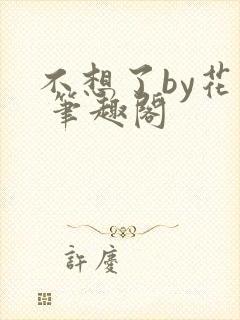 不想了by花
筆趣閣
許慶